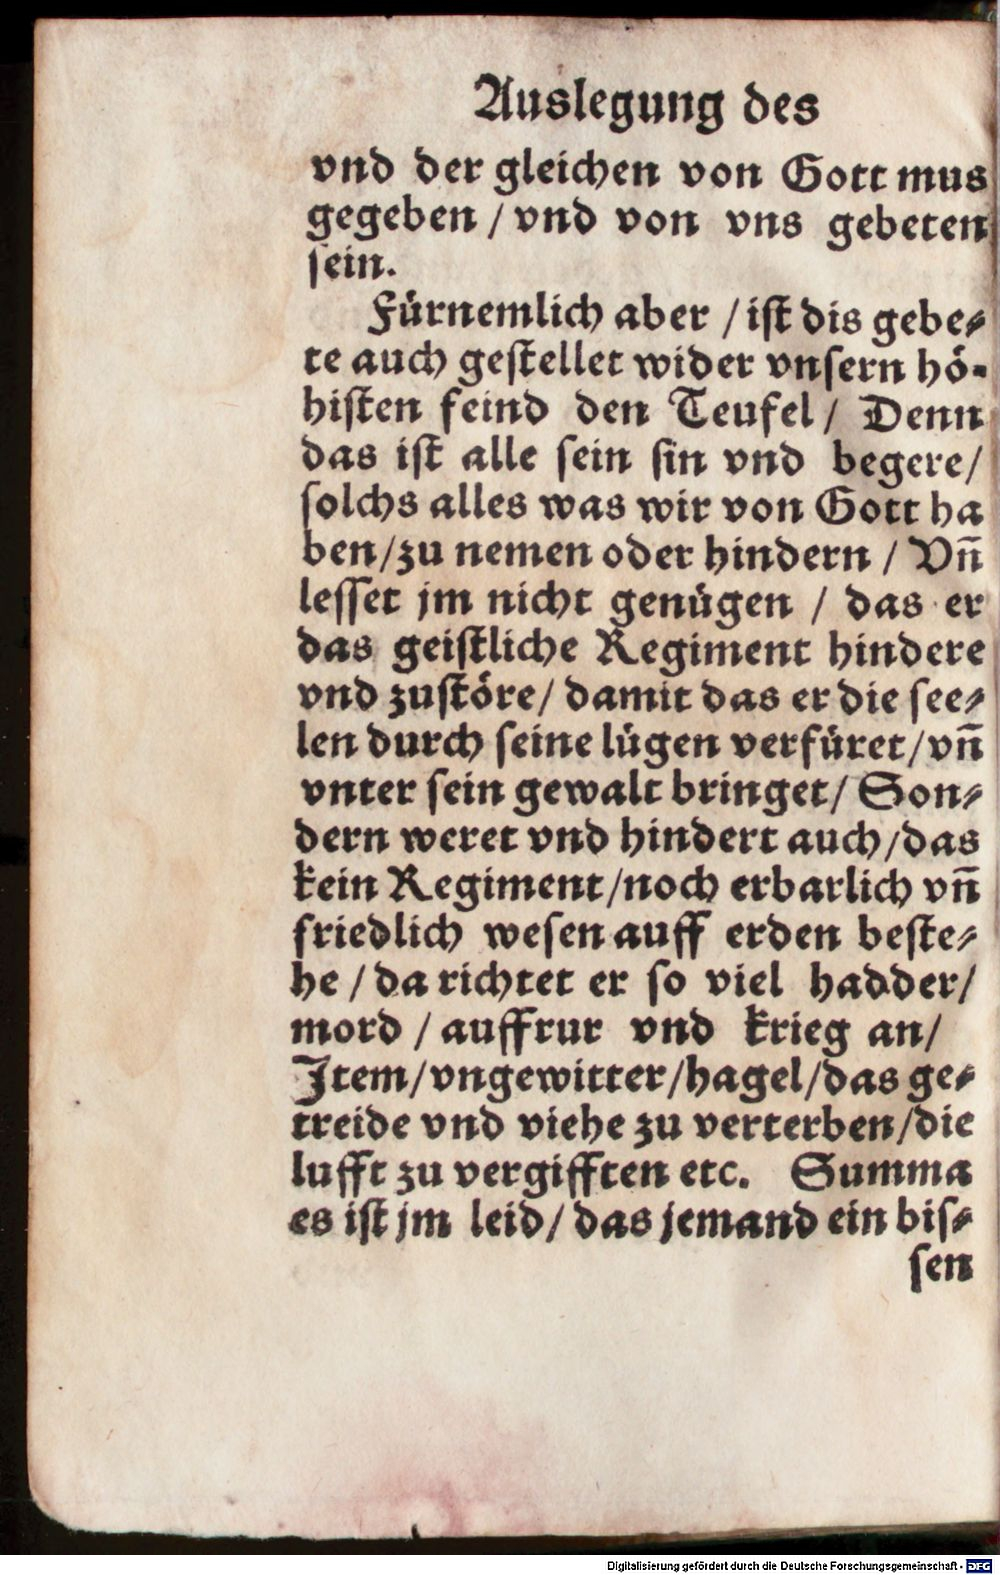 Auslegung des
vnd der gleichen von Gott mus
gegeben / vnd von vns gebeten
sein.
Fürnemlich aber / ist dis gebe⸗
te auch gestellet wider vnsern hö-
histen feind den Teufel / Denn
das ist alle sein sin vnd begere/
solchs alles was wir von Gott ha
ben/zu nemen oder hindern / Vñ
lesset jm nicht genügen / das er
das geistliche Regiment hindere
vnd zustöre/ damit das er die see⸗
len durch seine lügen verfüret/vñ
vnter sein gewalt bringet/ Son⸗
dern weret vnd hindert auch/das
kein Regiment/noch erbarlich vñ
friedlich wesen auff erden beste⸗
he / da richtet er so viel hadder/
mord / auffrur vnd krieg an/
Item/vngewitter/hagel/das ge⸗
treide vnd viehe zu verterben/die
lufft zu vergifften etc. Summa
es ist jm leid/ das jemand ein bis⸗
sen
Digitalisierung gefördert durch die Deutsche Forschungsgemeinschaft - DFG